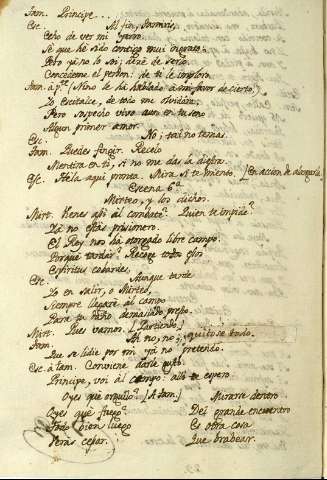 Tam. Principe...
Esc. Al fin, Tamiri,
Echo de ver mi yerro.
Sé que he sido contigo mui ingrato:
Pero yá no lo soi; dexé de serlo.
Concedeme el perdon: de ti le imploro.
Tam. à pte. (Nino le há hablado à mi favor de cierto.)
Yo, Escitalce, de todo me olvidára;
Pero sospecho vive aun en tu seno
Algun primer amor.
Esc. No; tal no temas.
Tam. Puedes fingir. Recelo
Mentira en ti, si no me das la diestra.
Esc. Hela aqui pronta. Mira si te miento. (En accion de alargarla.
Escena 6ª
Mirteo, y los dichos.
Mirt. Vienes asi al combate? Quien te impide?
Yá no estás prisionero.
El Rey nos há otorgado libre campo.
Porqué tardas? Recoge todos esos
Espiritus cobardes.
Esc. Aunque tarde
Yo en salir, o Mirteo,
Siempre llegaré al campo
Para tu daño demasiado presto.
Mirt. Pues vamos. (Partiendo.)
Tam. Ah no, no;
Que se lidie por mi yá no pretendo.
Esc. à Tam. Conviene darle gusto.
Principe, voi al campo: alli te espero.
Oyes qué orgullo? (A Tam.)
Oyes qué fuego?
Todo bien luego
Verás cesar.
Mirarse dentro
Del grande encuentro
Es otra cosa
Que bradear.